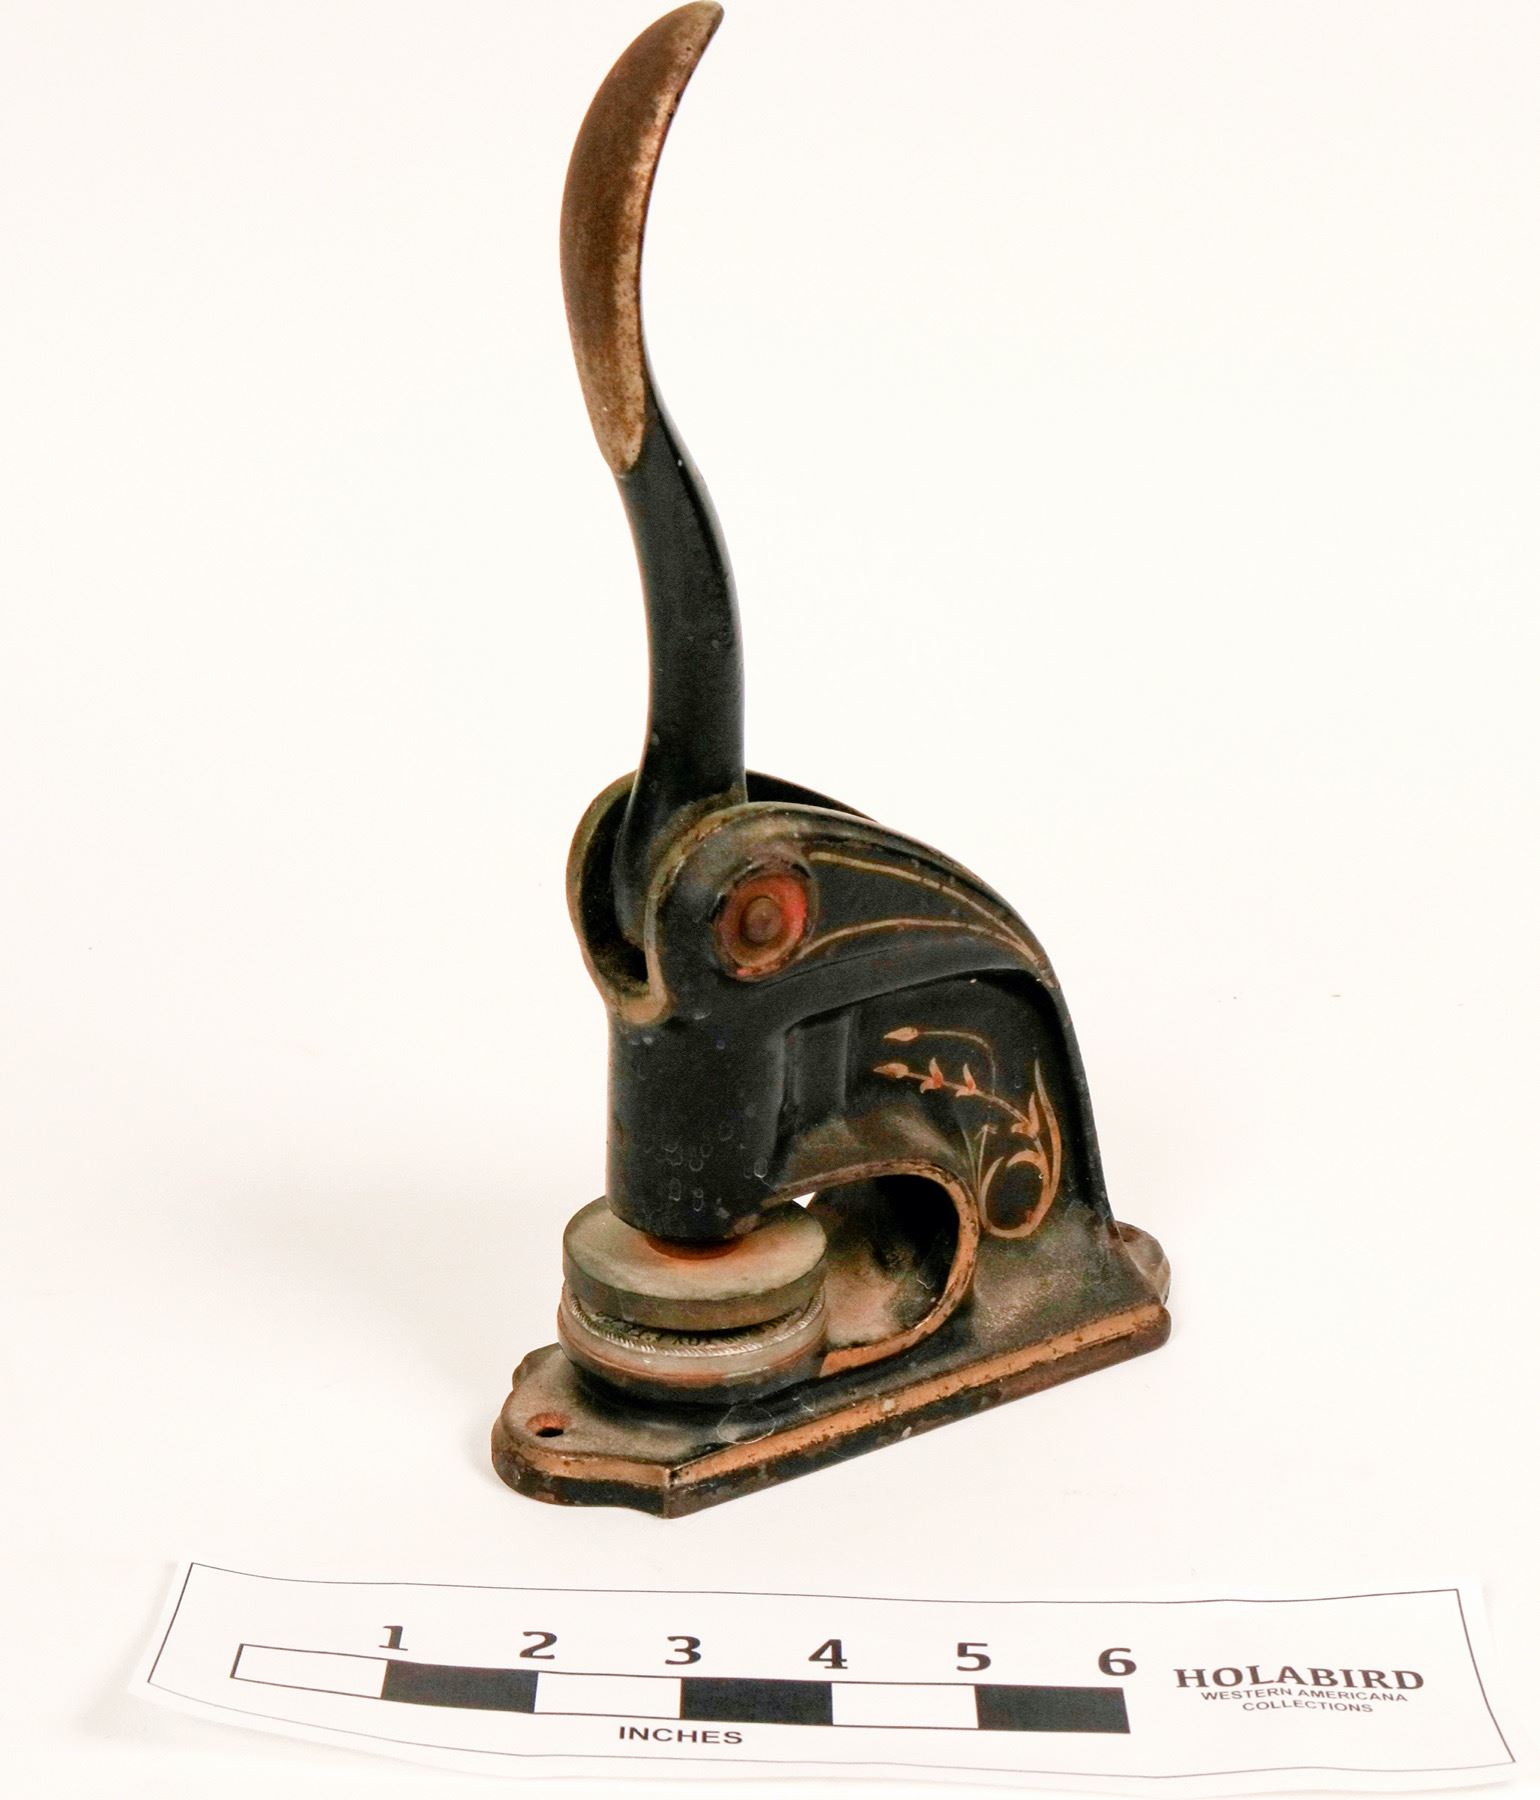 1 2 3 4 5 6
INCHES
HOLABIRD
WESTERN AMERICANA
COLLECTIONS